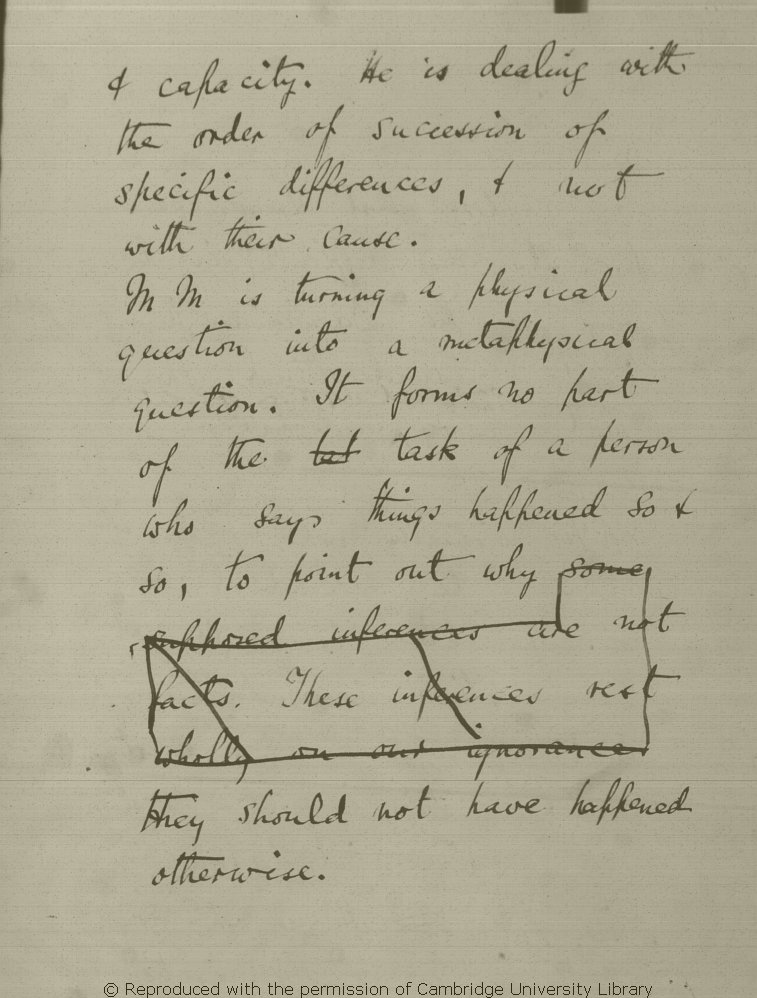 & capacity. He is dealing with
the order of succession of
specific differences, & not
with their cause.
M M is turning a physical
question into a metaphysical
question. It forms no part
of the task of a person
who says things happened so &
so, to point out why some
supposed inferences are not
facts. These inferences rest
wholly on our ignorance
they should not have happened
otherwise.
© Reproduced with the permission of Cambridge University Library